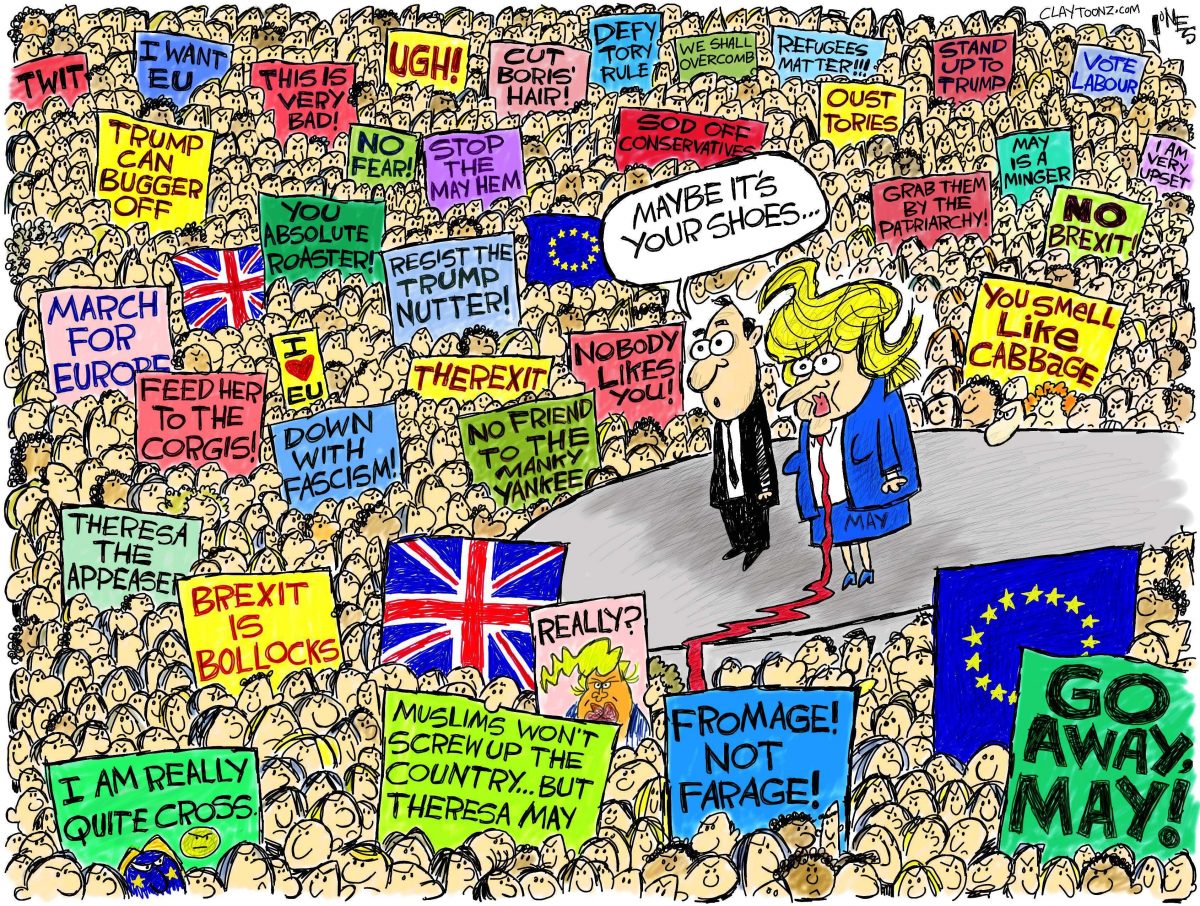 CLAYTOONZ.COM
JONES
TWIT
I WANT
EU
THIS IS
VERY
BAD!
UGH!
CUT
BORIS'
HAIR!
DEFY
TORY
RULE
WE SHALL
OVERCOMB
REFUGEES
MATTER!!!
STAND
UP TO
TRUMP
VOTE
LABOUR
TRUMP
CAN
BUGGER
OFF
NO
FEAR!
STOP
THE
MAY HEM
SOD OFF
CONSERVATIVES
OUST
TORIES
MAY
IS A
MINGER
I AM
VERY
UPSET
YOU
ABSOLUTE
ROASTER!
RESIST THE
TRUMP
NUTTER!
MAYBE IT'S
YOUR SHOES...
GRAB THEM
BY THE
PATRIARCHY!
NO
BREXIT!
MARCH
FOR
EUROPE
FEED HER
TO THE
CORGIS!
I
EU
THEREXIT
NOBODY
LIKES
YOU!
YOU SMELL
LIKE
CABBAGE
DOWN
WITH
FASCISM!
NO FRIEND
TO THE
MANKY
YANKEE
MAY
THERESA
THE
APPEASER
BREXIT
IS
BOLLOCKS
REALLY?
I AM REALLY
QUITE CROSS.
MUSLIMS WON'T
SCREW UP THE
COUNTRY...BUT
THERESA MAY
FROMAGE!
NOT
FARAGE!
GO
AWAY,
MAY!